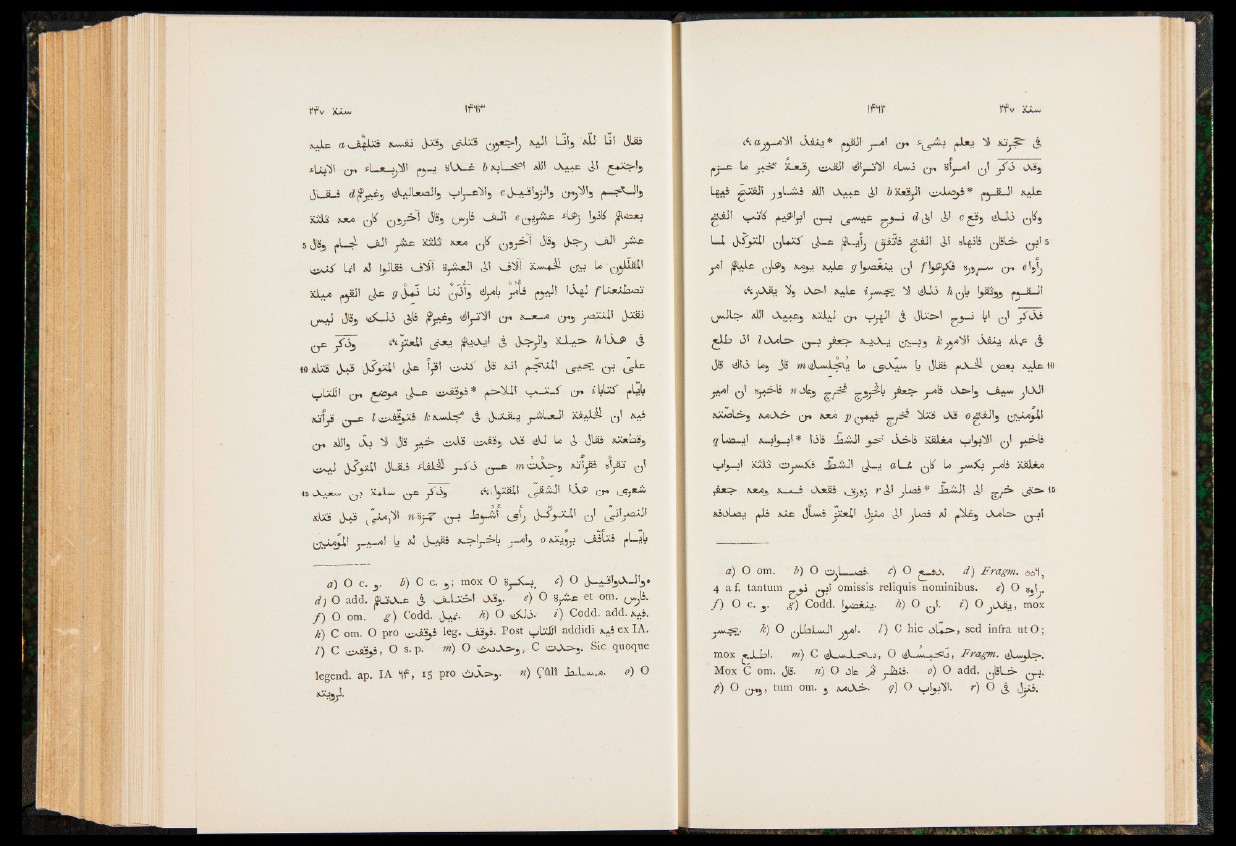 ١٤٦٢ سنة ٢٤٧
في تحركه لا يعلم بشىء من امر القوم * ينفذ الامور a ۞
وقد ذكر ان امرأة من نساء الاتراك القت رقعة تخبر ما عزم
عليه القوم * فوصلت الرقعة b الى عبيد الله فشاور الفتح فيها
وكان ذلك وقع c الى ابى d نوح عيسى بن ابراهيم كاتب الفتح
5 ابن خاقان فانهاه الى الفتح فاتفق رأيهم على كتمان المتوكل لما
رأوا e من سروره فكرهوا f ان ينغصوا g عليه يومه وهان عليهم امر
القوم ووثقوا بان h ذلك لا يجسر i عليه احد ولا يقدر ۞
فذكر ان ابا نوح احتال في الهرب من ليلته وعبيد الله جالس
في عمله ينفذ الامور k وبين يديه جعفر بن حامد l اذ طلع
10 عليه بعض الخدم فقال يا سيدى ما يجلسك m قال وما ذاك قال
الدار سيف واحد فامر جعفر بالخروج فخرج وعاد n فاخبره ان امير
المؤمنين والفتح o قد قتلا فخرج فيمن p معه من خدمه وخاصته
فاخبر ان الابواب مغلقة فاخذ نحو الشط فاذا * ابوابه ايضا q
مغلقة فامر بكسر ما كان ممّا a يلى الشط فكسرت ثلثة ابواب
15 حتى خرج الى الشط * فصار الى r زورق فقعد فيه ومعه جعفر
ابن حامد وغلام له فصار الى منزل المعتز فسأل عنه فلم يصادفه
a) O om. b) O فصارت. c) O دفع. d) Fragm. ٥٥٦,
4 a f. tantum ابن نوح omissis reliquis nominibus. e) O راوه.
f) O c. و. g) Codd. ينغضوا. h) O ان. i) O يقدر, mox
يجسر. k) O امور السلطان. l) C hic حماد, sed infra ut O;
mox اطلع. m) C, O, Fragm. جلوسك.
Mox C om. قال. n) O عاد فنظر ثم. o) O add. بن خاقان.
p) O ومن, tum om. و خدمه. q) O الابواب. r) O فنزل في.
١٤٦٣ سنة ٢٤٧
فقال انّا لله وانّا اليه راجعون قتلنى وقتل نفسه فتلهّف a عليه
واجتمع الى عبيد الله اصحابه b غداة يوم الاربعاء من الابناء
والعجم والارمن والزواقيل c والاعراب والصعاليك وغيرهم d فقال
بعضهم كانوا زهاء عشرين e الف فارس وقال آخرون كان معه ثلثة
5 عشر الف رجل وقال آخرون كان معه ثلثة عشر الف لجام وقال
المقلّلون ما بين الخمسة آلاف الى العشرة آلاف فقالوا له انما كنت
تصطنعنا f لهذا اليوم فأمُر بامرك وأذن لنا نَمِلْ g على القوم ميلة
نقتل المنتصر ومن معه من الاتراك وغيرهم فابى ذلك وقال ليس
في هذا h حيلة والرجل في ايديهم يعنى المعتز ۞ وذكر عن
10 علىّ بن يحيى المنجّم انه قال كنت اقرأ على المتوكّل قبل قتله
بايّام كتابا i من كتب الملاحم * فوقفت على موضع من الكتاب
فيه ان الخليفة العاشر يقتل في مجلسه k فتوقّفت l عن قرأته
وقطعته فقال لى ما لك قد وقفت قلت خير قال لا بدّ والله من
ان تقرأه فقرأته وحدت m عن ذكر الخلفاء فقال المتوكّل ليت
15 شعرى من هذا الشقىّ المقتول ۞ وذكر عن سلمة بن سعيد
النصرانىّ ان المتوكّل رأى أشوط بن حمزة n الارمنىّ قبل قتله
بايّام فتأفّف برؤيته o وامر باخراجه فقيل له يا امير المؤمنين
a) O c. و. b) C c. و; mox O بكرة. c) O والدواقيل.
d) O add. وقد اختلف في عدتهم. e) O عشرة et om. فارس.
f) O om. g) Codd. نميل. h) O ذلك. i) Codd. add. فيه.
k) C om. O pro فوقفت leg. فوقف. Post الكتاب addidi فيه ex IA.
l) C فوقفت, O s. p. m) O, C وحدت. Sic quoque
legend. ap. IA ٦٤, 15 pro وحدث. n) Çûlî مسلط. o) O
لرويته.